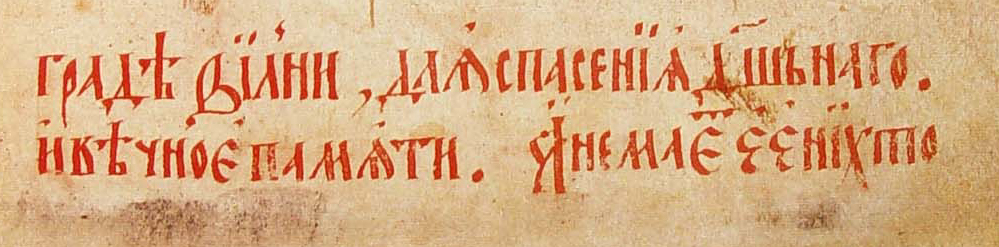 градѣ вїлни, длѧ спасенїѧ дш҃ьнаго.
и вѣчноє памѧти. ꙗ немаєть є нїхто